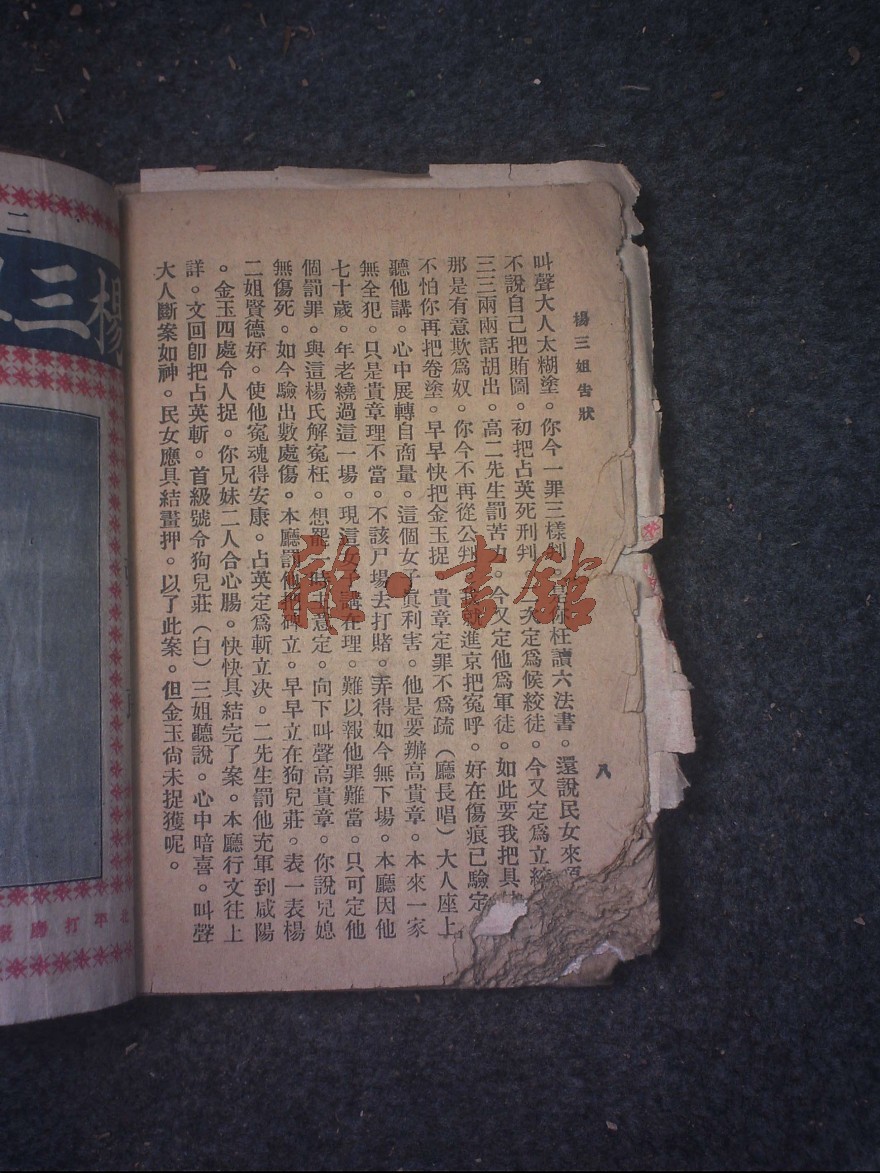 楊三姐告狀
八
叫聲大人太糊塗。你今一罪三樣判
枉讀六法書。還說民女來
不說自己把賄圖。初把占英死刑判
次定為候絞徒。今又定為立絞
三三兩兩話胡出。高二先生罰苦力。今又定他為軍徒。如此要我把具
那是有意欺為奴。你今不再從公判。我就進京把冤呼。好在傷痕已驗定
不怕你再把卷塗。早早快把金玉捉
貴章定罪不為疏(廳長唱)大人座上
聽他講。心中展轉自商量。這個女子眞利害。他是要辦高貴章。本來一家
無全犯。只是貴章理不當。不該尸場去打賭。弄得如今無下場。本廳因他
七十歲。年老繞過這一場。現這女子講在理。難以報他罪難當。只可定他
個罰罪。與這楊氏解冤枉。想罷一時主意定。向下叫聲高貴章。你說兒媳
無傷死。如今驗出數處傷。本廳罰他把碑立。早早立在狗兒莊。表一表楊
二姐賢德好。使他冤魂得安康。占英定為斬立決。二先生罰他充軍到咸陽
。金玉四處令人捉。你兄妹二人合心腸。快快具結完了案。本廳行文往上
詳。文回卽把占英斬。首級號令狗兒莊(白)三姐聽說。心中暗喜。叫聲
大人斷案如神。民女應具結畫押。以了此案。但金玉尙未捉獲呢。
二
楊三
北平打磨廠
雅·書館